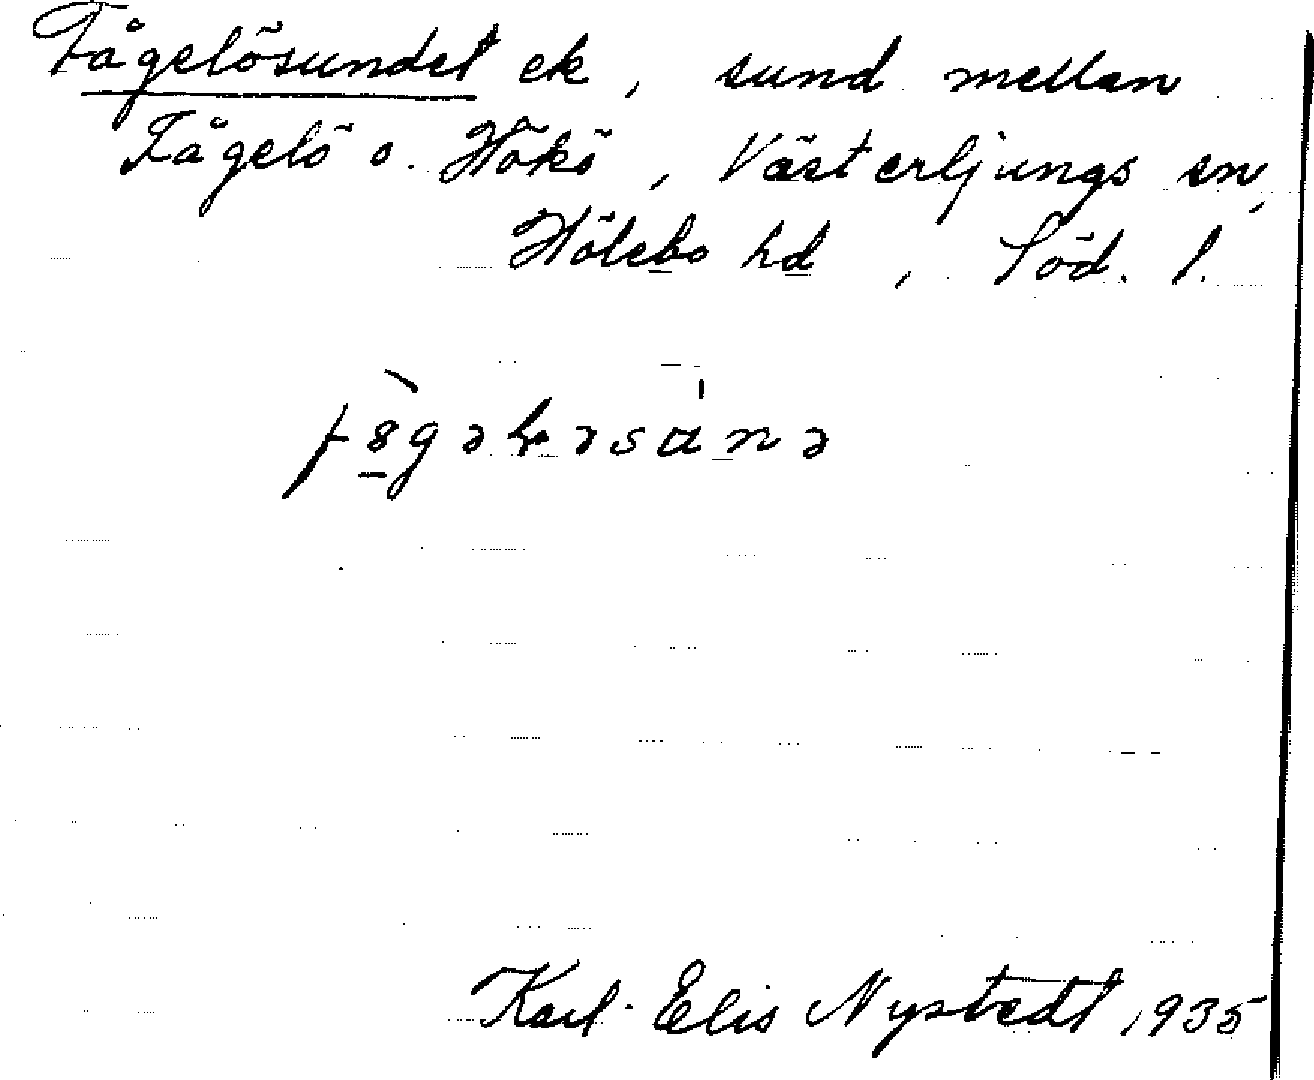 Fågelösundet ek, sund mellan
Fågelö o. Hökö, Västerljungs sn,
Hölebo hd, Söd. l.
Karl-Elis Nystedt, 1935